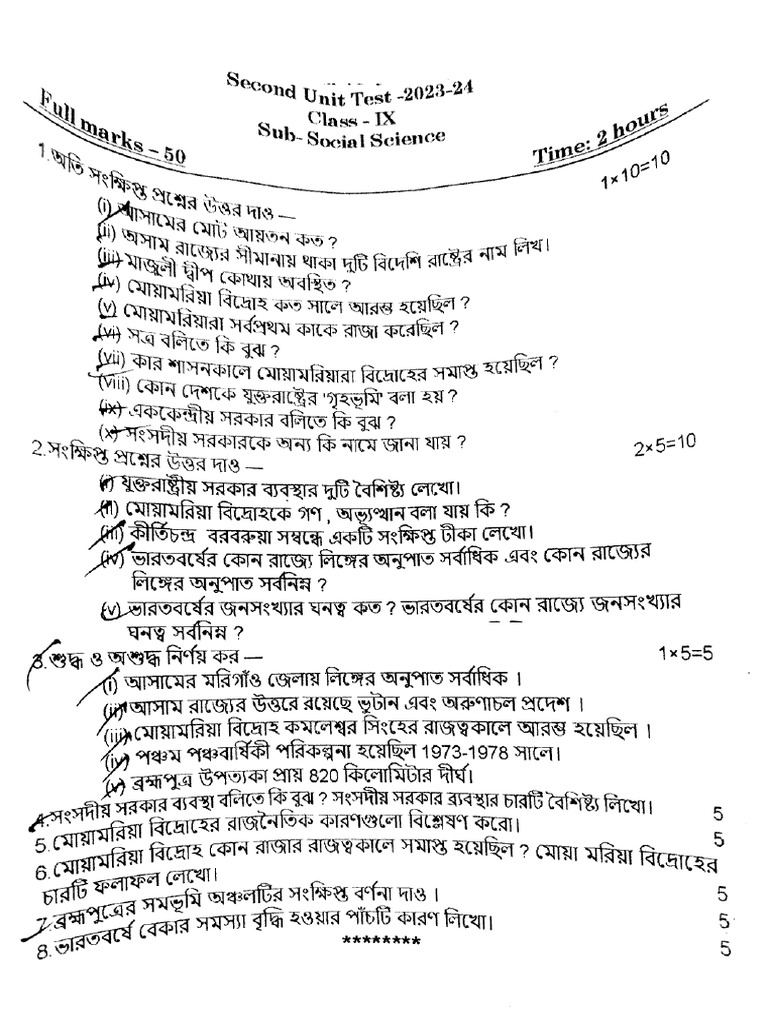 Second Unit Test -2023-24
Class - IX
Sub- Social Science
Full marks – 50
Time: 2 hours
1.অতি সংক্ষিপ্ত প্রশ্নের উত্তর দাও — 1×10=10
(i) আসামের মোট আয়তন কত ?
(ii) অসাম রাজ্যের সীমানায় থাকা দুটি বিদেশি রাষ্ট্রের নাম লিখ।
(iii) মাজুলী দ্বীপ কোথায় অবস্থিত ?
(iv) মোয়ামরিয়া বিদ্রোহ কত সালে আরম্ভ হয়েছিল ?
(v) মোয়ামরিয়ারা সর্বপ্রথম কাকে রাজা করেছিল ?
(vi) সত্র বলিতে কি বুঝ ?
(vii) কার শাসনকালে মোয়ামরিয়ারা বিদ্রোহের সমাপ্ত হয়েছিল ?
(viii) কোন দেশকে যুক্তরাষ্ট্রের 'গৃহভূমি' বলা হয় ?
(ix) এককেন্দ্রীয় সরকার বলিতে কি বুঝ ?
(x) সংসদীয় সরকারকে অন্য কি নামে জানা যায় ?
2.সংক্ষিপ্ত প্রশ্নের উত্তর দাও — 2×5=10
(i) যুক্তরাষ্ট্রীয় সরকার ব্যবস্থার দুটি বৈশিষ্ট্য লেখো।
(ii) মোয়ামরিয়া বিদ্রোহকে গণ , অভ্যুত্থান বলা যায় কি ?
(iii) কীর্তিচন্দ্র বরবরুয়া সম্বন্ধে একটি সংক্ষিপ্ত টীকা লেখো।
(iv) ভারতবর্ষের কোন রাজ্যে লিঙ্গের অনুপাত সর্বাধিক এবং কোন রাজ্যের
লিঙ্গের অনুপাত সর্বনিম্ন ?
(v) ভারতবর্ষের জনসংখ্যার ঘনত্ব কত ? ভারতবর্ষের কোন রাজ্যে জনসংখ্যার
ঘনত্ব সর্বনিম্ন ?
3.শুদ্ধ ও অশুদ্ধ নির্ণয় কর — 1×5=5
(i) আসামের মরিগাঁও জেলায় লিঙ্গের অনুপাত সর্বাধিক ।
(ii) আসাম রাজ্যের উত্তরে রয়েছে ভুটান এবং অরুণাচল প্রদেশ ।
(iii) মোয়ামরিয়া বিদ্রোহ কমলেশ্বর সিংহের রাজত্বকালে আরম্ভ হয়েছিল ।
(iv) পঞ্চম পঞ্চবার্ষিকী পরিকল্পনা হয়েছিল 1973-1978 সালে।
(v) ব্রহ্মপুত্র উপত্যকা প্রায় 820 কিলোমিটার দীর্ঘ।
4.সংসদীয় সরকার ব্যবস্থা বলিতে কি বুঝ ? সংসদীয় সরকার ব্যবস্থার চারটি বৈশিষ্ট্য লিখো। 5
5.মোয়ামরিয়া বিদ্রোহের রাজনৈতিক কারণগুলো বিশ্লেষণ করো। 5
6.মোয়ামরিয়া বিদ্রোহ কোন রাজার রাজত্বকালে সমাপ্ত হয়েছিল ? মোয়া মরিয়া বিদ্রোহের
চারটি ফলাফল লেখো। 5
7.ব্রহ্মপুত্রের সমভূমি অঞ্চলটির সংক্ষিপ্ত বর্ণনা দাও । 5
8.ভারতবর্ষে বেকার সমস্যা বৃদ্ধি হওয়ার পাঁচটি কারণ লিখো। 5
********